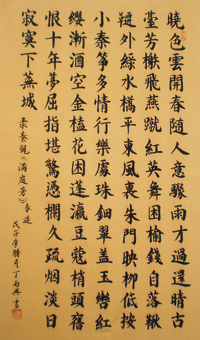 曉色雲開春隨人意驟雨才過還晴古
臺芳榭飛燕蹴紅英舞困榆錢自落鞦
韆外綠水橋平東風裏朱門映柳低按
小秦箏多情行樂處珠鈿翠蓋玉轡紅
纓漸酒空金榼花困蓬瀛豆蔻梢頭舊
恨十年夢屈指堪驚憑欄久疏烟淡日
寂寞下蕪城
秦觀《滿庭芳》
戊子年臘月丁 書